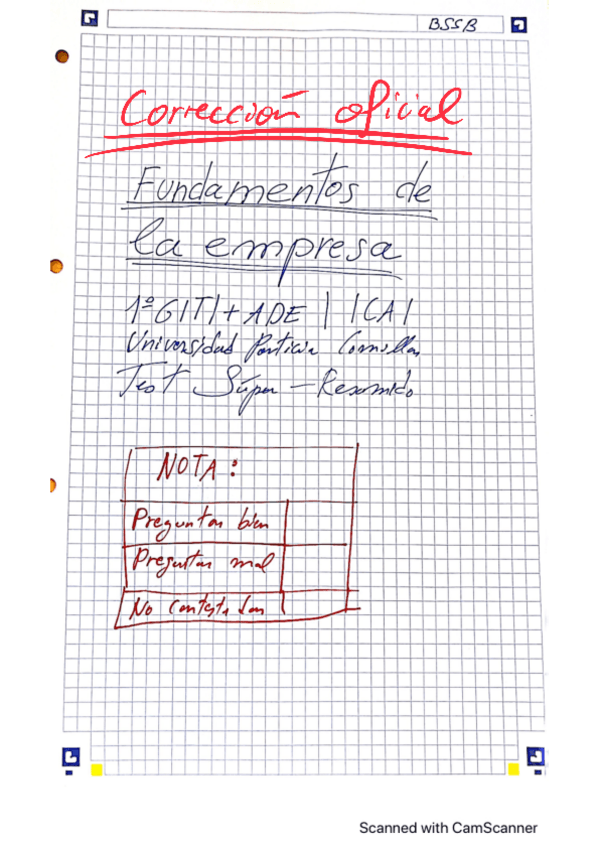 BSSB
Corrección oficial
Fundamentos de
la empresa
1º GITI + ADE | ICAI
Universidad Pontificia Comillas
Test Súper - Resumido
NOTA:
Preguntas bien
Preguntas mal
No contestadas
Scanned with CamScanner